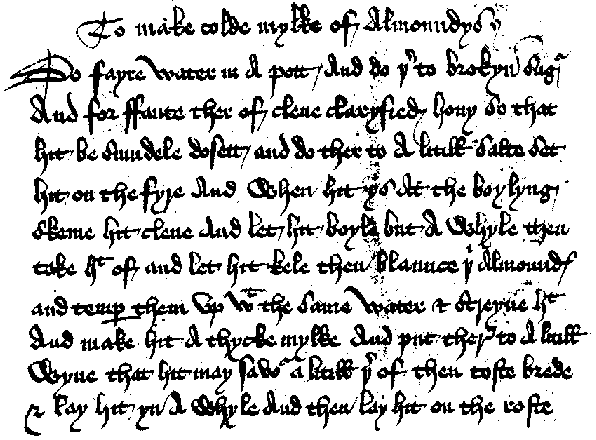 To make colde mylke of Almoundys
Do fayre water in A pott And do yʳ to brokyn sugʳ
And for ffaute ther of clene claryfied hony so that
hit be sumdele dosett and do ther to A litull salte set
hit on the fyre And When hit ys At the boylyng
skeme hit clene And let hit boyle but A Whyle then
take hᵗ of and let hit kele then blaunce yʳ Almondes
and temp them up wᵗ the same Water & streyne hᵗ
And make hit A thycke mylke And put therʳ to A litull
Wyne that hit may savʳ a litull yʳ of then toste brede
& lay hit yn A Whyle And then lay hit on the roste